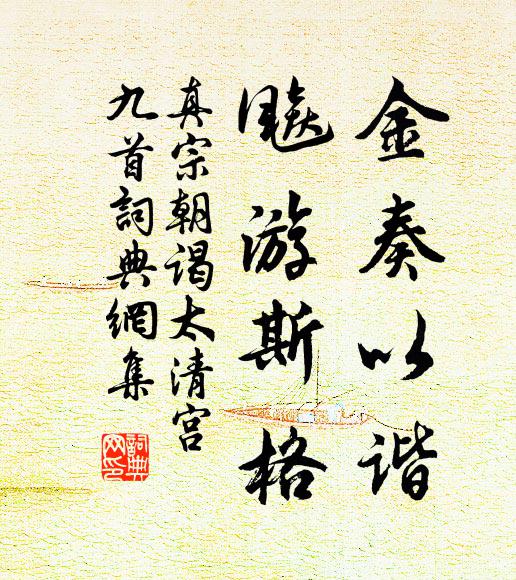 金奏以谐
飈游斯格
真宗朝谒太清宫
九首詞典網集
詞典
网印